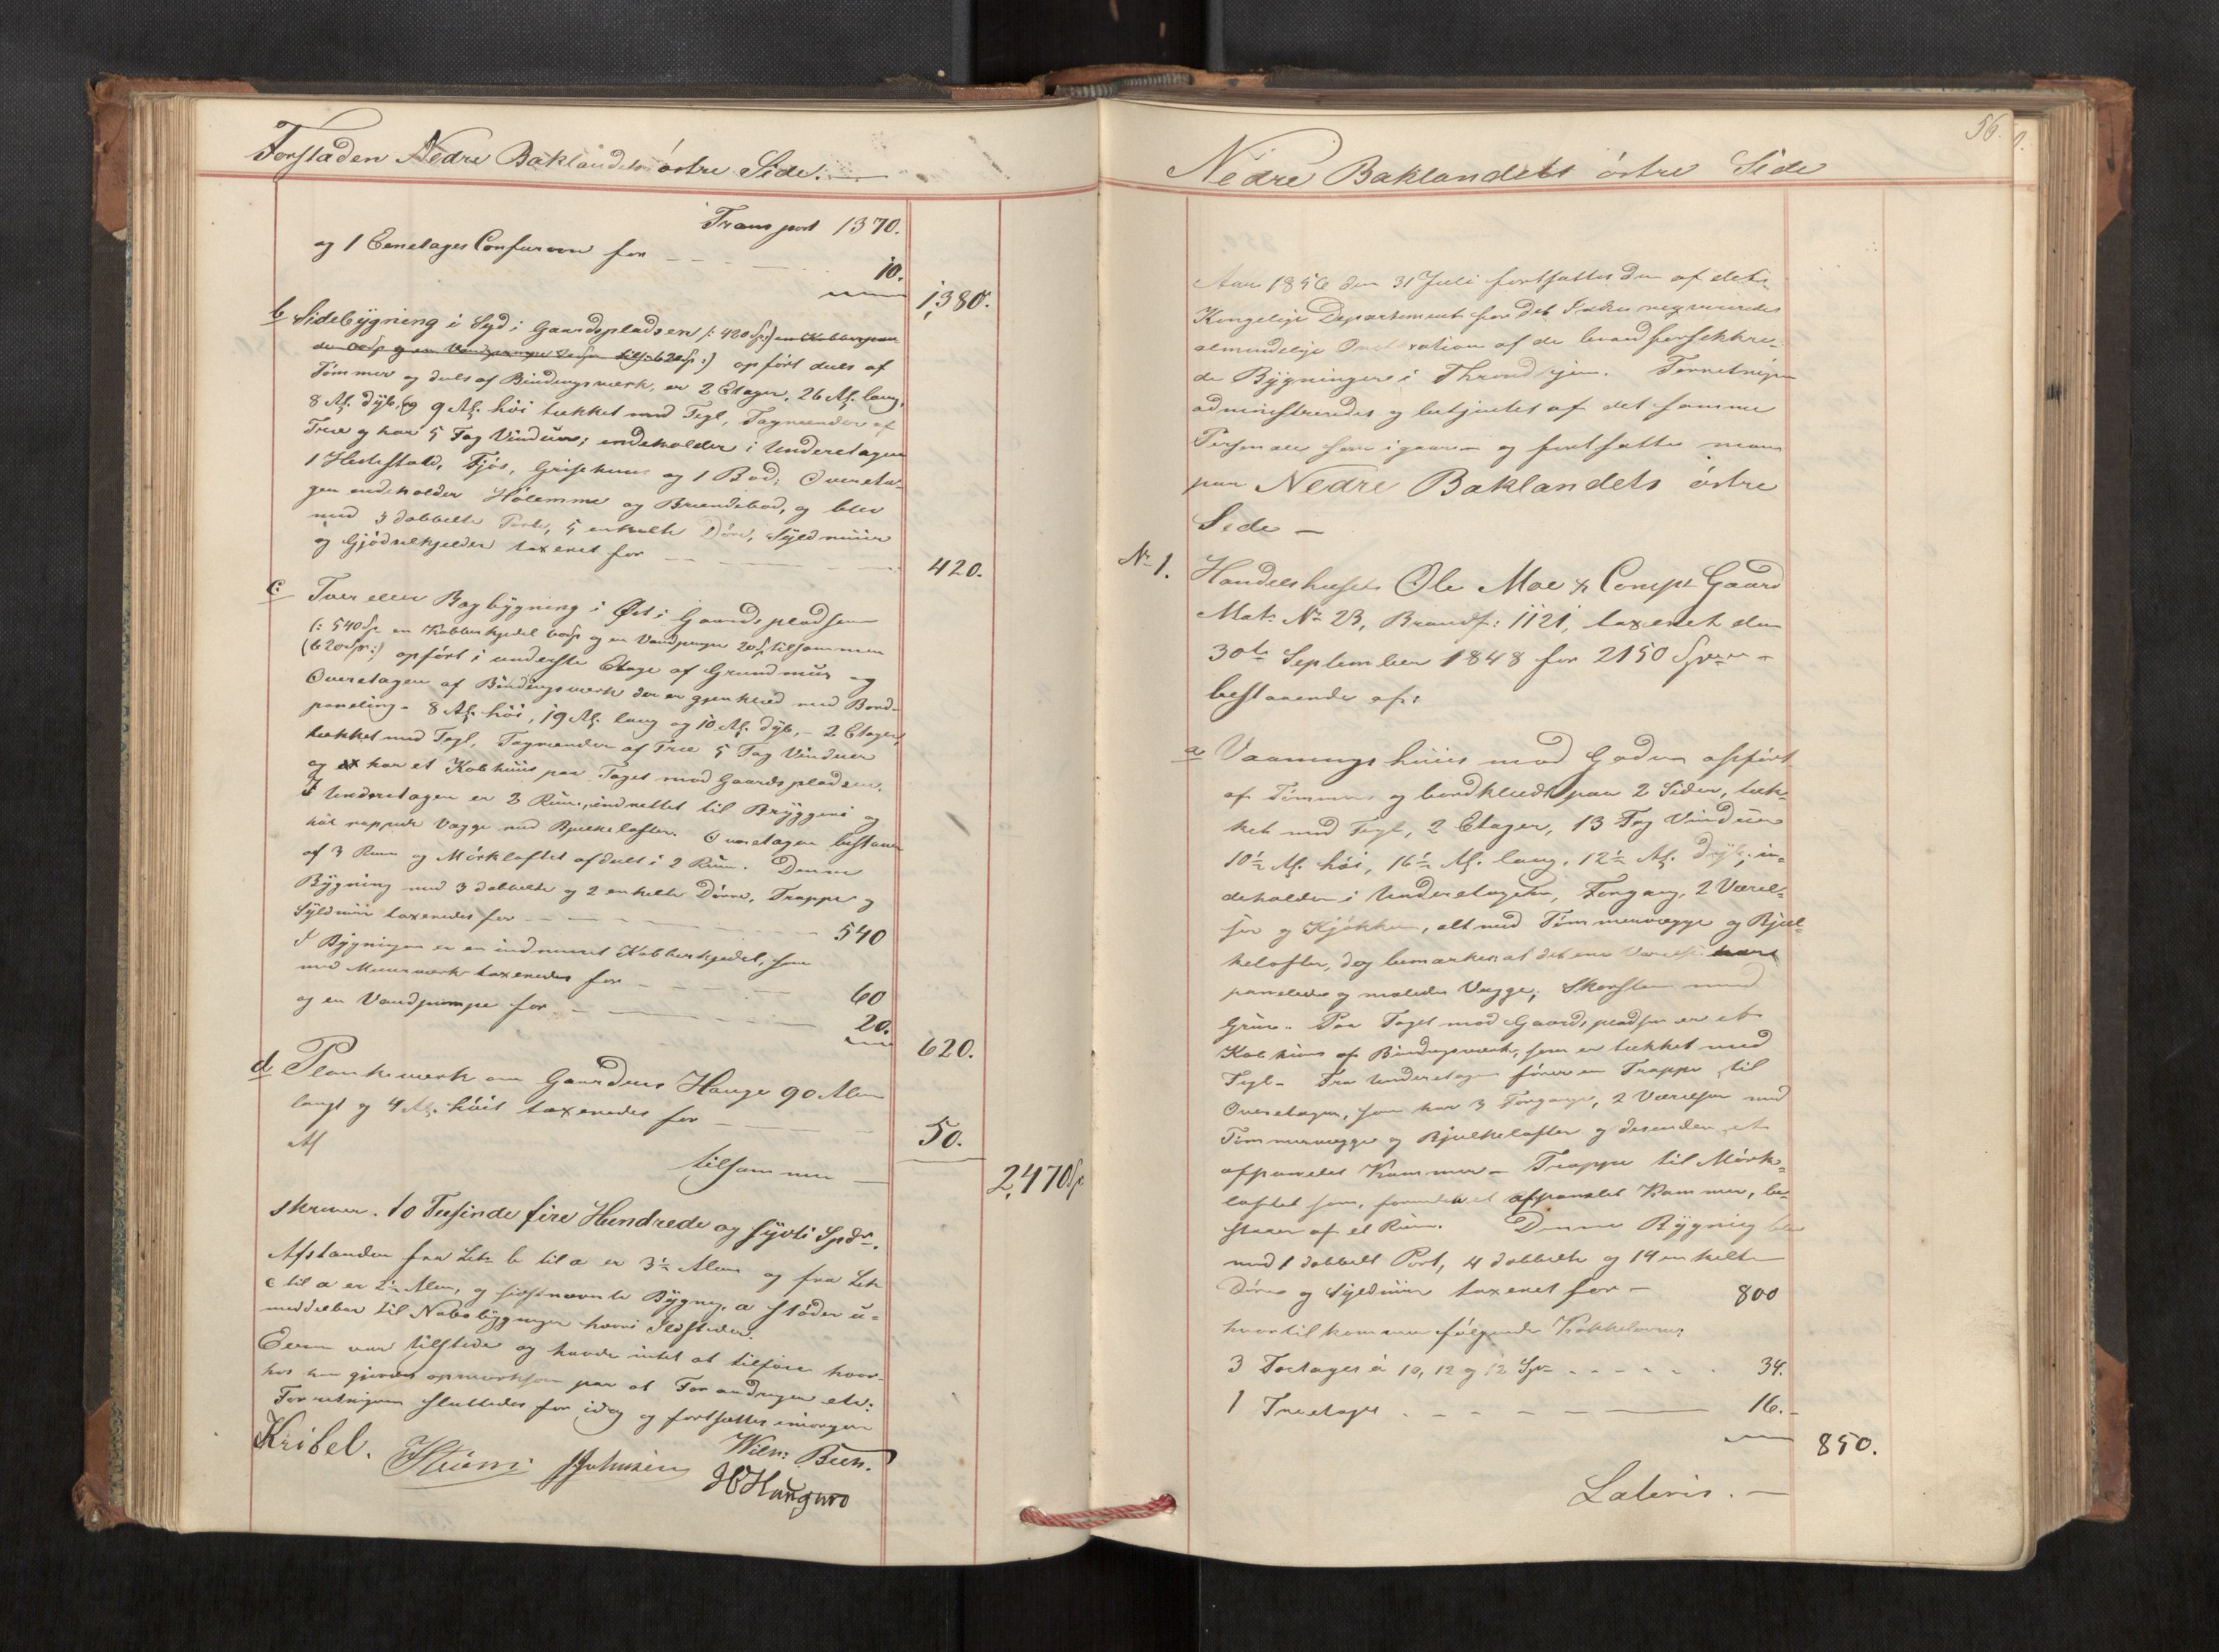 Forstaden Nedre Baklandets östre Side.
Transport 1370.
og 1 Eenetages Comfuroon for 10.
1,380.
b Sidebygning i Syd i Gaardspladsen (: 420 Sp:) en Kobberpan
de og en Vandpumpe :) opfört deels af
Tömmer og deels af Bindingsværk, er 2 Etager, 26 Al. lang,
8 Al. dyb, og 9 Al. höi tækket med Tegl, Tagrender af
Træe og har 5 Fag Vinduer; indeholder i Underetagen
1 Hestestald, Fjös, Grisehuus og 1 Bod; Overeta-
gen indeholder Hölemme og Brændebod, og blev
med 3 dobbelte Porte, 5 enkelte Döre, Syldmuur
og Gjödselkjelder taxeret for 420.
c Tver eller Bagbygning i Öst i Gaardspladsen
(: 540 Sp. en Kobberkjedel 60 Sp og en Vandpumpe 20 Sp. tilsammen
(620 Sp:) opfört i underste Etage af Grundmuur og
Overetagen af Bindingsværk der er gjenklæd med Bord-
paneling. 8 Al. höi, 19 Al. lang og 10 Al. dyb, - 2 Etager,
tækket med Tegl, Tagrender af Træe 5 Fag Vinduer
og har et Kobhuus paa Taget mod Gaardspladsen.
I Underetagen er 3 Rum, indrettet til Bryggeri og
har rappede Vægge med Bjelkelofter. Overetagen bestaaer
af 3 Rum og Mörkloftet afdeelt i 2 Rum. Denne
Bygning med 3 dobbelte og 2 enkelte Dörre, Trappe og
Syldmuur taxeredes for 540
I Bygningen er en indmuret Kobberkjedel, som
med Muurværk taxeredes for 60
og en Vandpumpe for 20.
620.
d Plankeværk om Gaardens Hauge 90 Alen
langt og 4 Al. höit taxeredes for 50.
Al
tilsammen 2,470 Sp
skriver. to Tusinde fire Hundrede og syvti Spdr.
Afstanden fra Litr b til a er 3½ Alen og fra Litr
c til a er 2½ Alen, og sidstnævnte Bygning, a stöder u-
middelbar til Nabobygninger hvori Ildsteder.
Eieren var tilstede og havde intet at tilföie hvor-
hos han gjordes opmærksom paa at Forandringer etc:
Forretningen sluttedes for idag og fortsættes imorgen
Kribel. Johnsen Wilh: Buch.
56.
Nedre Baklandets östre Side
Aar 1856 den 31 Juli fortsattes den af det
Kongelige Departement for det Indre requirerede
almindelige af de brandforsikkre-
de Bygninger i Throndhjem. Forretningen
administreredes og betjentes af det samme
Personale som igaar - og fortsatte man
paa Nedre Baklandets östre
Side -
No 1. Handelshuset Ole Moe & Compe Gaard
Matr. No 23, Brandf: 1121, taxeret den
30te September 1848 for 2150 Spd -
bestaaende af:
a Vaaningshuus mod Gaden opfört
af Tömmer og bordklædt paa 2 Sider, tæk-
ket med Tegl, 2 Etager, 13 Fag Vinduer
10½ Al. höi, 16½ Al. lang, 12½ Al. dyb, in-
deholder i Underetagen, Forgang, 2 Værel-
ser og Kjökken, alt med Tömmervægge og Bjel-
kelofter, dog bemærkes at det ene Værelse har
panelede og malede Vægge; Skorsteen med
Grue. Paa Taget mod Gaardspladsen er et
Kobhuus af Bindingsværk, som er tækket med
Tegl - Fra Underetagen förer en Trappe til
Overetagen, som har 3 Forgange, 2 Værelser med
Tömmervægge og Bjelkelofter og desuden et
afpanelet Kammer - Trappe til Mörk-
loftet som, foruden et afpanelet Kammer, be-
staaer af et Rum. Denne Bygning blev
med 1 dobbelt Port, 4 dobbelte og 14 enkelte
Dörre og Syldmuur taxeret for - 800
hvortil kommer fölgende Kakkelovne:
3 Toetages á 10, 12 og 12 Spd 34.
1 Treetages 16.
850.
Lateris.